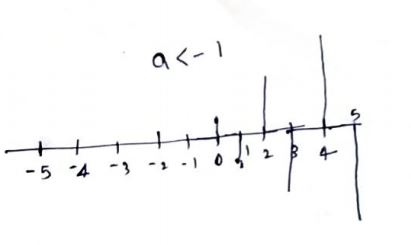 a < - 1
-5 -4 -3 -2 -1 0 1 2 3 4 5